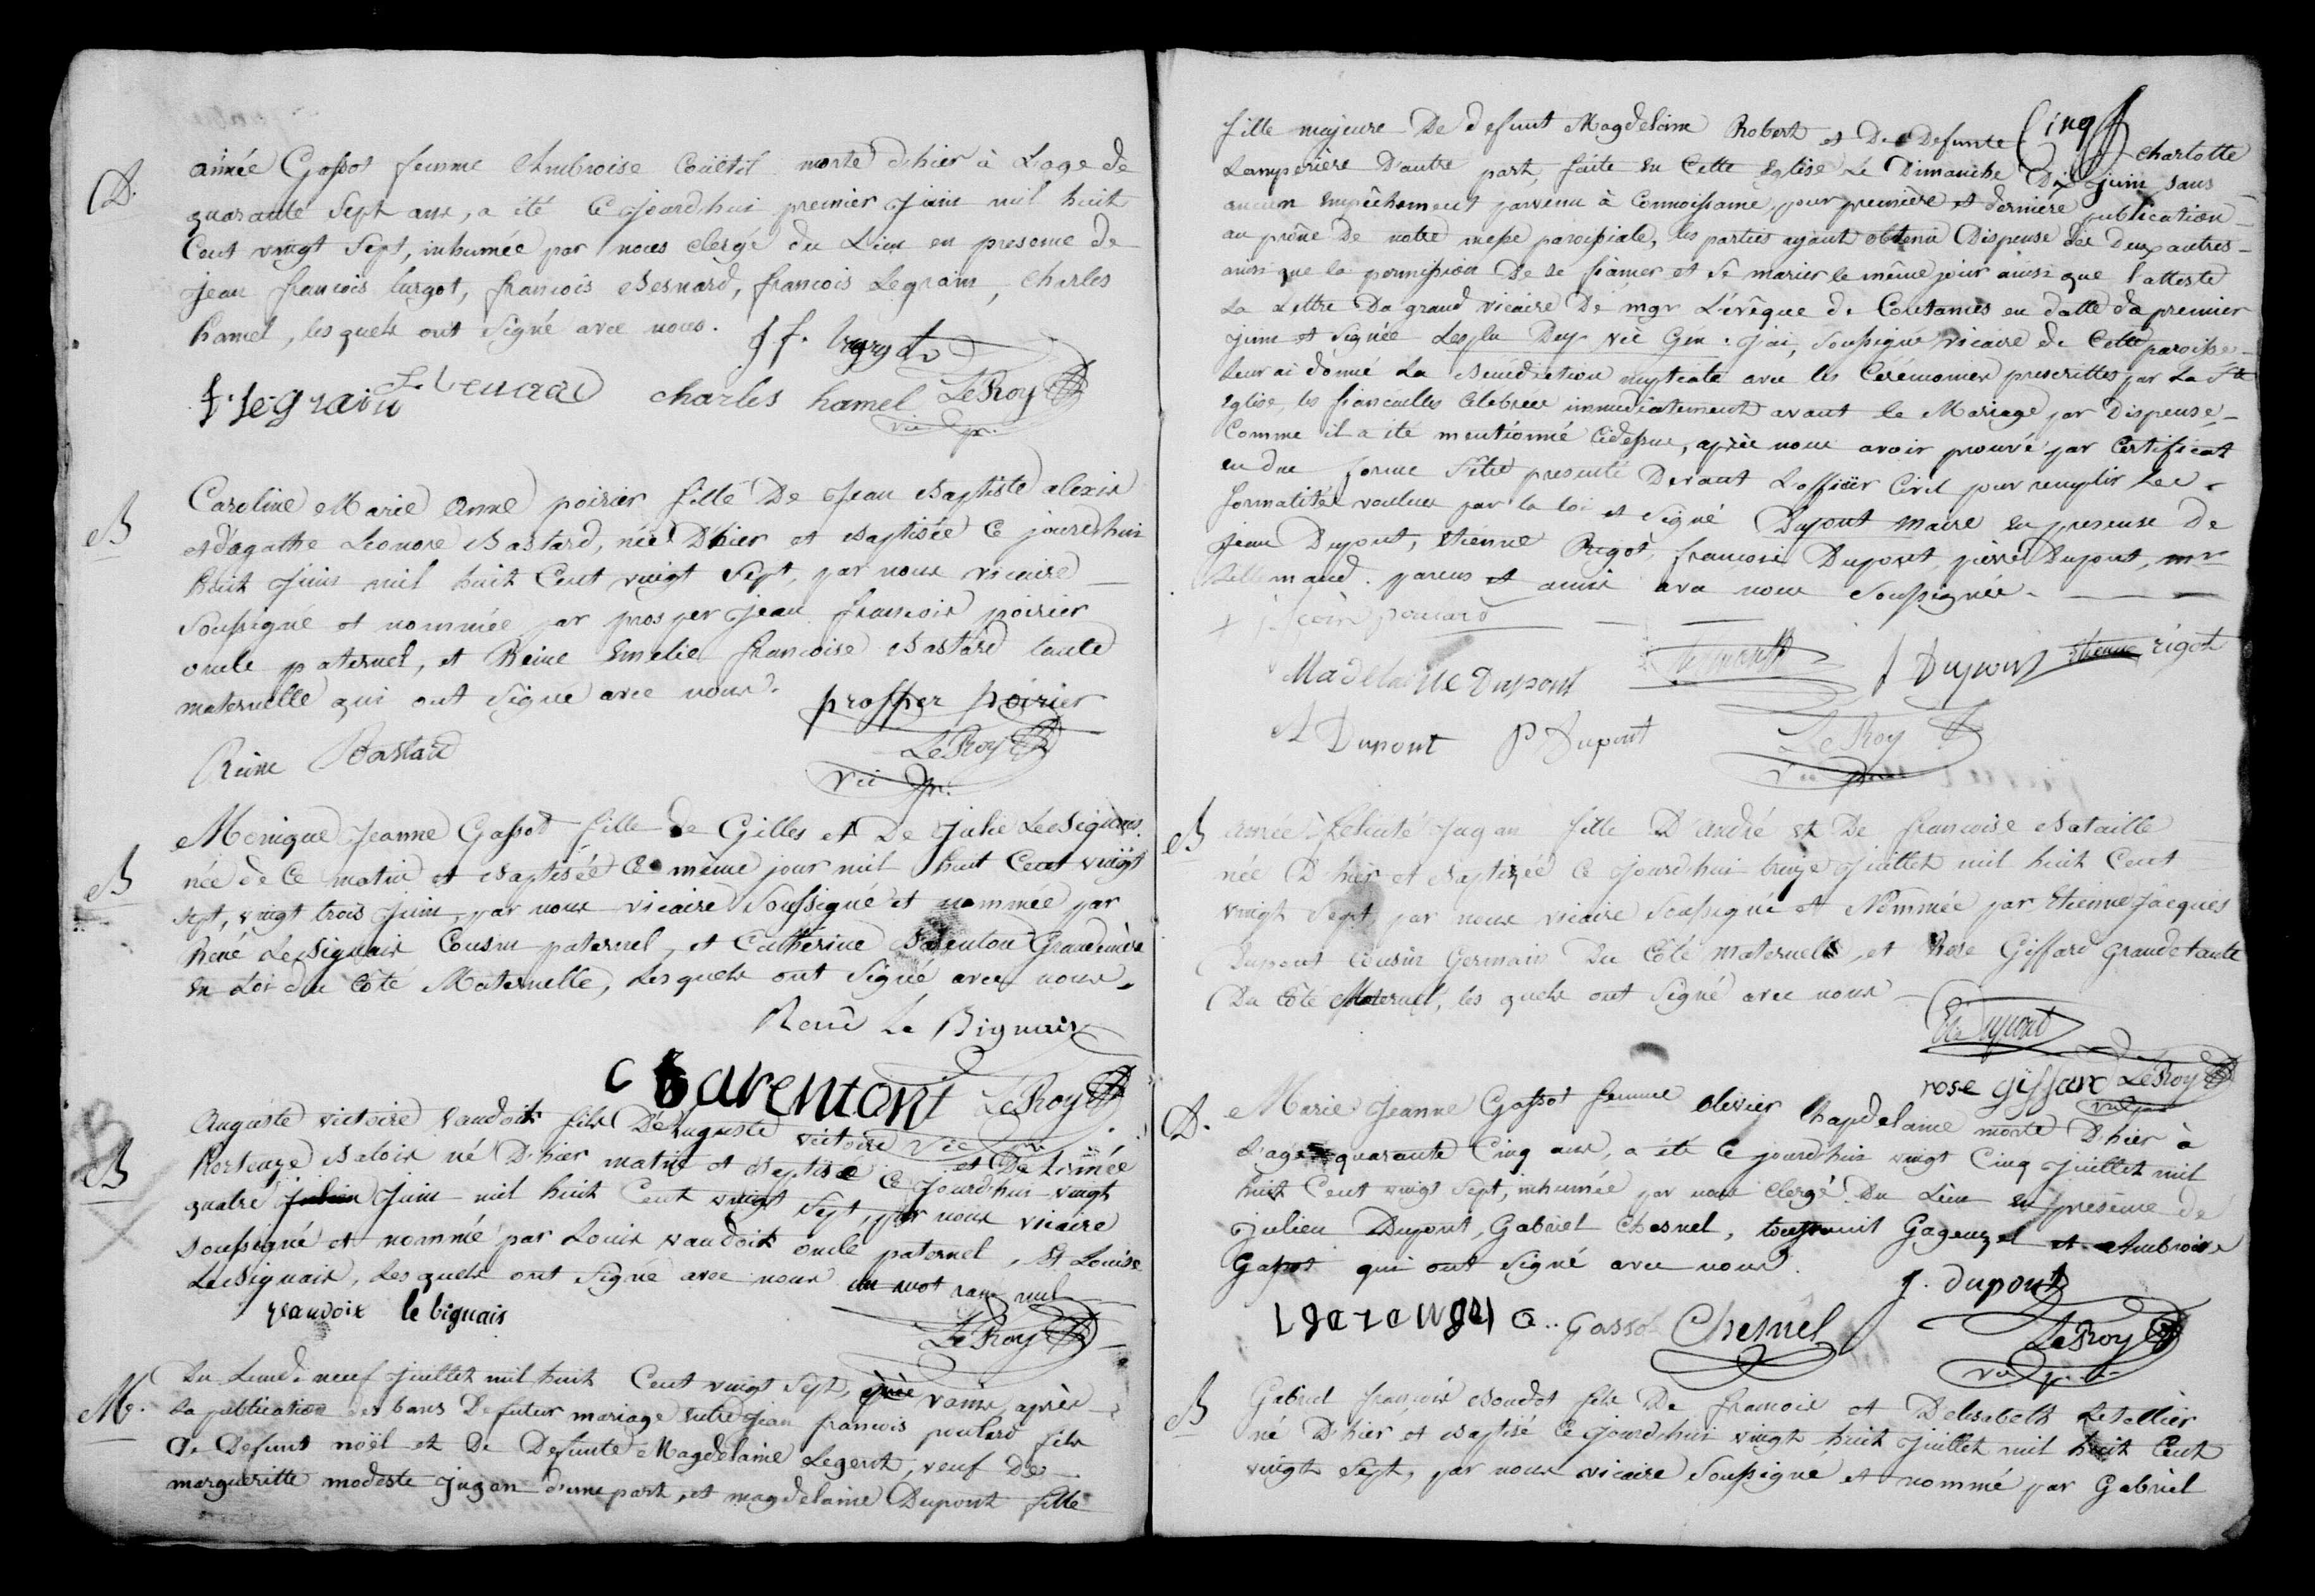 D.
aimée Gassot femme Ambroise Coüétil morte d'hier à L'age de
quarante Sept ans, a été Ce jourd'hui premier juin mil huit
Cent vingt Sept, inhumée par nous clergé du Lieu en presence de
jean francois turgot, francois Besnard, francois Legrain, Charles
hamel, les quels ont Signé avec nous. j f. turgot
f. legrain charles hamel LeRoy
vic
B
Caroline Marie Anne poirier fille De Jean Baptiste alexis
et d'agathe Leonore Bastard, née D'hier et Baptisée Ce jourd'hui
huit juin mil huit Cent vingt Sept, par nous vicaire
Soussigné et nommée par prosper jean francois poirier
oncle paternel, et Reine Emelie francoise Bastard tante
maternelle qui ont Signé avec nous. prosper poirier
Reine Bastard LeRoy
vic
B
Monique Jeanne Gassot fille de Gilles et De Julie LeBignais
née de Ce matin et Baptisée Ce même jour mil huit Cent vingt
sept, vingt trois Juin, par nous vicaire Soussigné et nommée par
René LeBignais Cousin paternel, et Catherine Barenton Grandemère
en Loi du Côté Maternelle, Lesquels ont Signé avec nous.
René Le Bignais
C Barentont LeRoy
vic
B
Auguste victoire vaudois fils De Auguste victoire et De Aimée
hortenze Balois né D'hier matin et Baptisé Ce jourd'hui vingt
quatre Juin mil huit Cent vingt Sept, par nous vicaire
Soussigné et nommé par Louis vaudois oncle paternel, et Louise
LeBignais, Lesquels ont Signé avec nous un mot raié nul
vaudoix le bignais
LeRoy
M.
Du Lundi neuf juillet mil huit Cent vingt Sept, après
La publication des bans De futur mariage entre Jean francois poulard fils
De Defunt noël et De Defunte Magdelaine Legerot, veuf De
margueritte modeste jugan d'une part, et magdelaine Dupont fille
Cinq
fille majeure De defunt Magdelaine Robert et De Defunte Charlotte
Lamperière D'autre part, faite en Cette Eglise Le Dimanche Dix Juin sans
aucun empêchement parvenu à Connoissance, pour première et dernière publication
au prône De notre messe paroissiale, les parties ayant obtenu Dispense des Deux autres
ainsi que la permission De se fiancer et Se marier le même jour ainsi que l'atteste
La Lettre Du grand vicaire De mgr L'évêque de Coutances en datte du premier
juin et Signée Gén. j'ai, Soussigné vicaire de Cette paroisse
leur ai donné La Bénédiction nuptiale avec les Cérémonies prescrittes par La Ste
Eglise, les fiancailles Célébrées immediatement avant le Mariage par Dispense
Comme il a été mentionné Cidessus, après nous avoir prouvé par Certificat
en due forme S'être presenté Devant L'officier Civil pour remplir Les
formalités voulues par la loi et Signé Dupont Maire en presence De
Jean Dupont, Etienne Rigot, francois Dupont, pierre Dupont,
parens et amis avec nous Soussignée.
poulard
Madelaine Dupont J Dupont Etienne rigot
Dupont P Dupont LeRoy
vic
B
Aimée Felicité Jugan fille D'André et De francoise Bataille
née D'hier et Baptizée Ce jourd'hui treize Juillet mil huit Cent
vingt Sept, par nous vicaire Soussigné et Nommée par Etienne Jacques
Dupont Cousin Germain Du Côté Maternel, et Rose Giffard Grandetante
Du Côté Maternel, les quels ont Signé avec nous
Dupont
rose giffard LeRoy
D.
Marie Jeanne Gassot femme Olivier Chapdelaine morte D'hier à
L'age quarante Cinq ans, a été Ce jourd'hui vingt Cinq Juillet mil
huit Cent vingt Sept, inhumée par nous Clergé Du Lieu en presence de
Julien Dupont, Gabriel Chesnel, toussaint et Ambroise
Gassot qui ont Signé avec nous. J. dupont
a.. Gassot Chesnel LeRoy
B
Gabriel francois Boudot fils De francois et D'elisabeth Letellier
né D'hier et Baptisé Ce jourd'hui vingt huit Juillet mil huit Cent
vingt Sept, par nous vicaire Soussigné et nommé par Gabriel